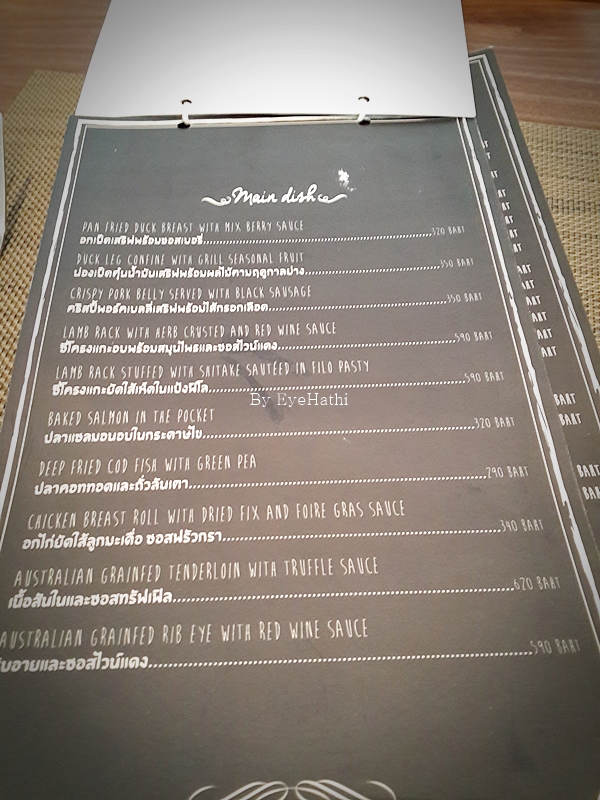 Main dish
PAN FRIED DUCK BREAST WITH MIX BERRY SAUCE
อกเป็ดเสริฟพร้อมซอสเบอรี่...320 BAHT
DUCK LEG CONFINE WITH GRILL SEASONAL FRUIT
น่องเป็ดตุ๋นน้ำมันเสริฟพร้อมผลไม้ตามฤดูกาลย่าง...350 BAHT
CRISPY PORK BELLY SERVED WITH BLACK SAUSAGE
คริสปี้พอร์คเบลลี่เสริฟพร้อมไส้กรอกเลือด...350 BAHT
LAMB RACK WITH HERB CRUSTED AND RED WINE SAUCE
ซี่โครงแกะอบพร้อมสมุนไพรและซอสไวน์แดง...590 BAHT
LAMB RACK STUFFED WITH SHITAKE SAUTÉED IN FILO PASTY
ซี่โครงแกะยัดไส้เห็ดในแป้งฟิโล...590 BAHT
By EyeHathi
BAKED SALMON IN THE POCKET
ปลาแซลมอนอบในกระดาษไข...320 BAHT
DEEP FRIED COD FISH WITH GREEN PEA
ปลาคอททอดและถั่วลันเตา...290 BAHT
CHICKEN BREAST ROLL WITH DRIED FIX AND FOIRE GRAS SAUCE
อกไก่ยัดไส้ลูกมะเดื่อ ซอสฟรัวกรา...390 BAHT
AUSTRALIAN GRAINFED TENDERLOIN WITH TRUFFLE SAUCE
เนื้อสันในและซอสทรัฟเฟิล...620 BAHT
AUSTRALIAN GRAINFED RIB EYE WITH RED WINE SAUCE
อายและซอสไวน์แดง...590 BAHT